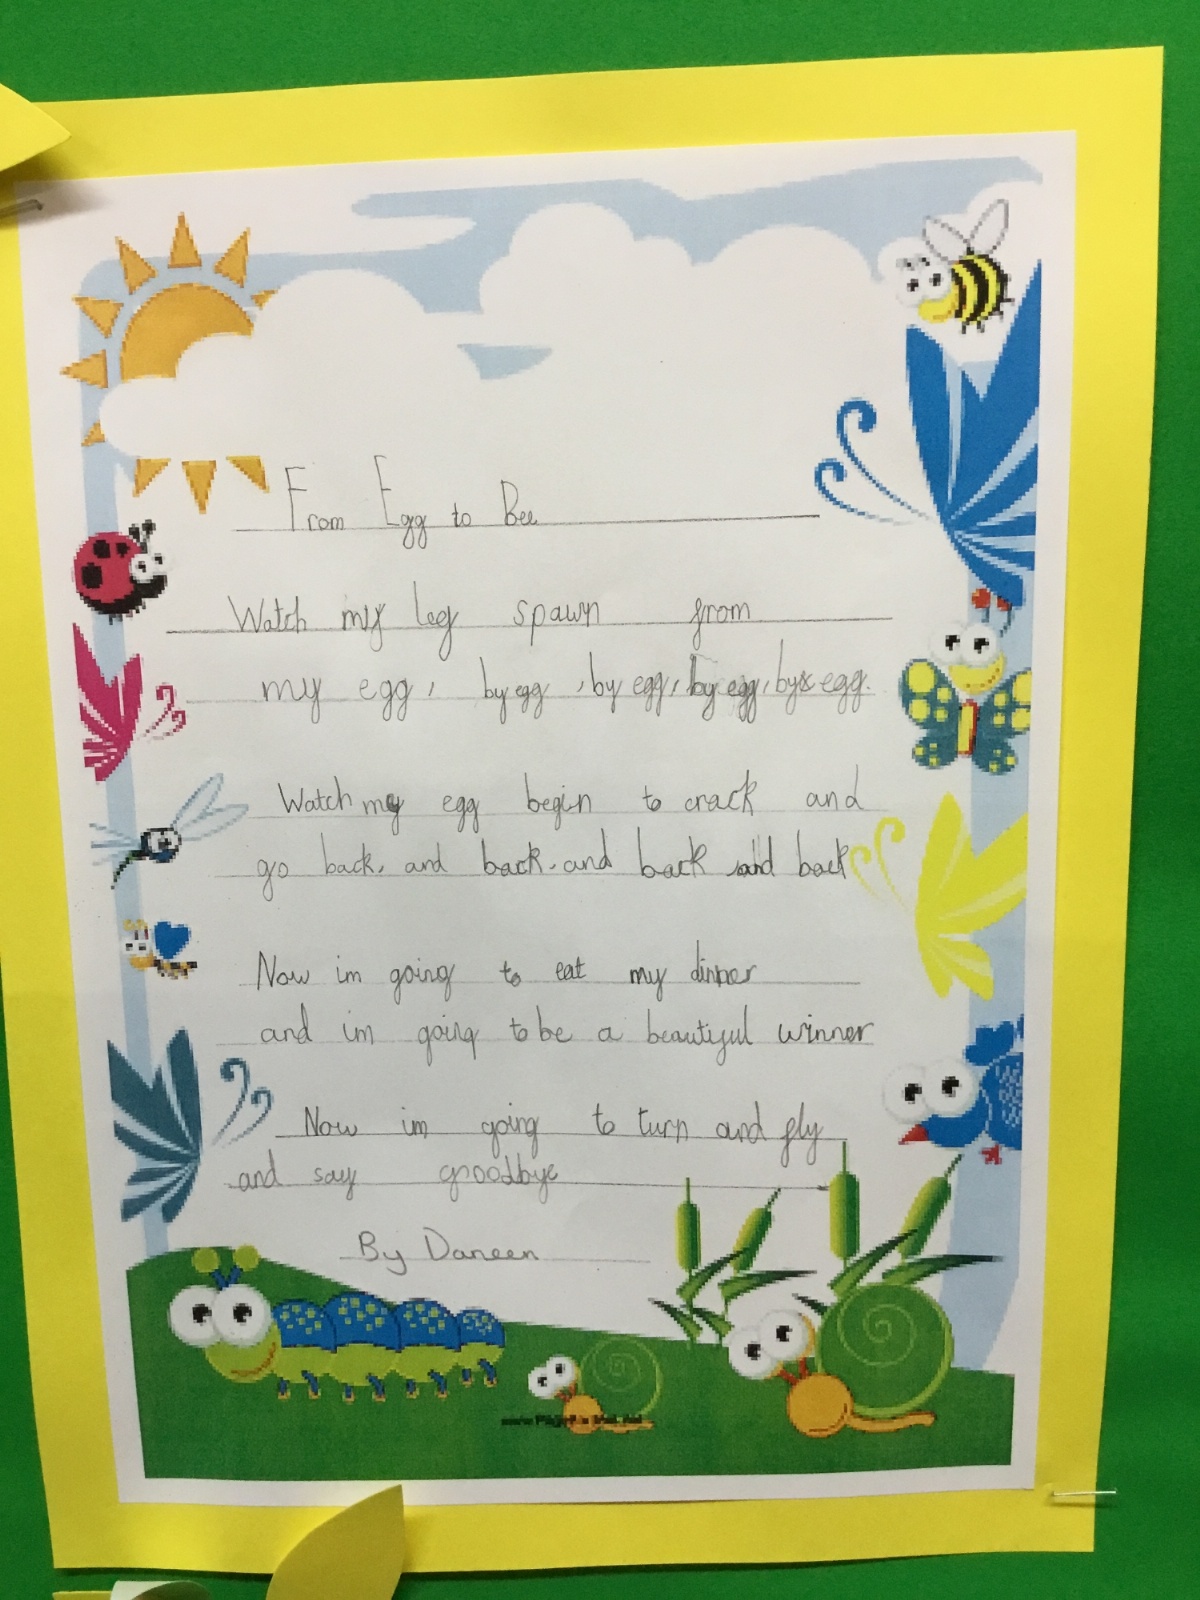 From Egg to Bee
Watch my leg spawn from
my egg, by egg, by egg, by egg, by egg.
Watch my egg begin to crack and
go back, and back. and back and back
Now im going to eat my dinner
and im going to be a beautiful winner
Now im going to turn and fly
and say goodbye
By Daneen